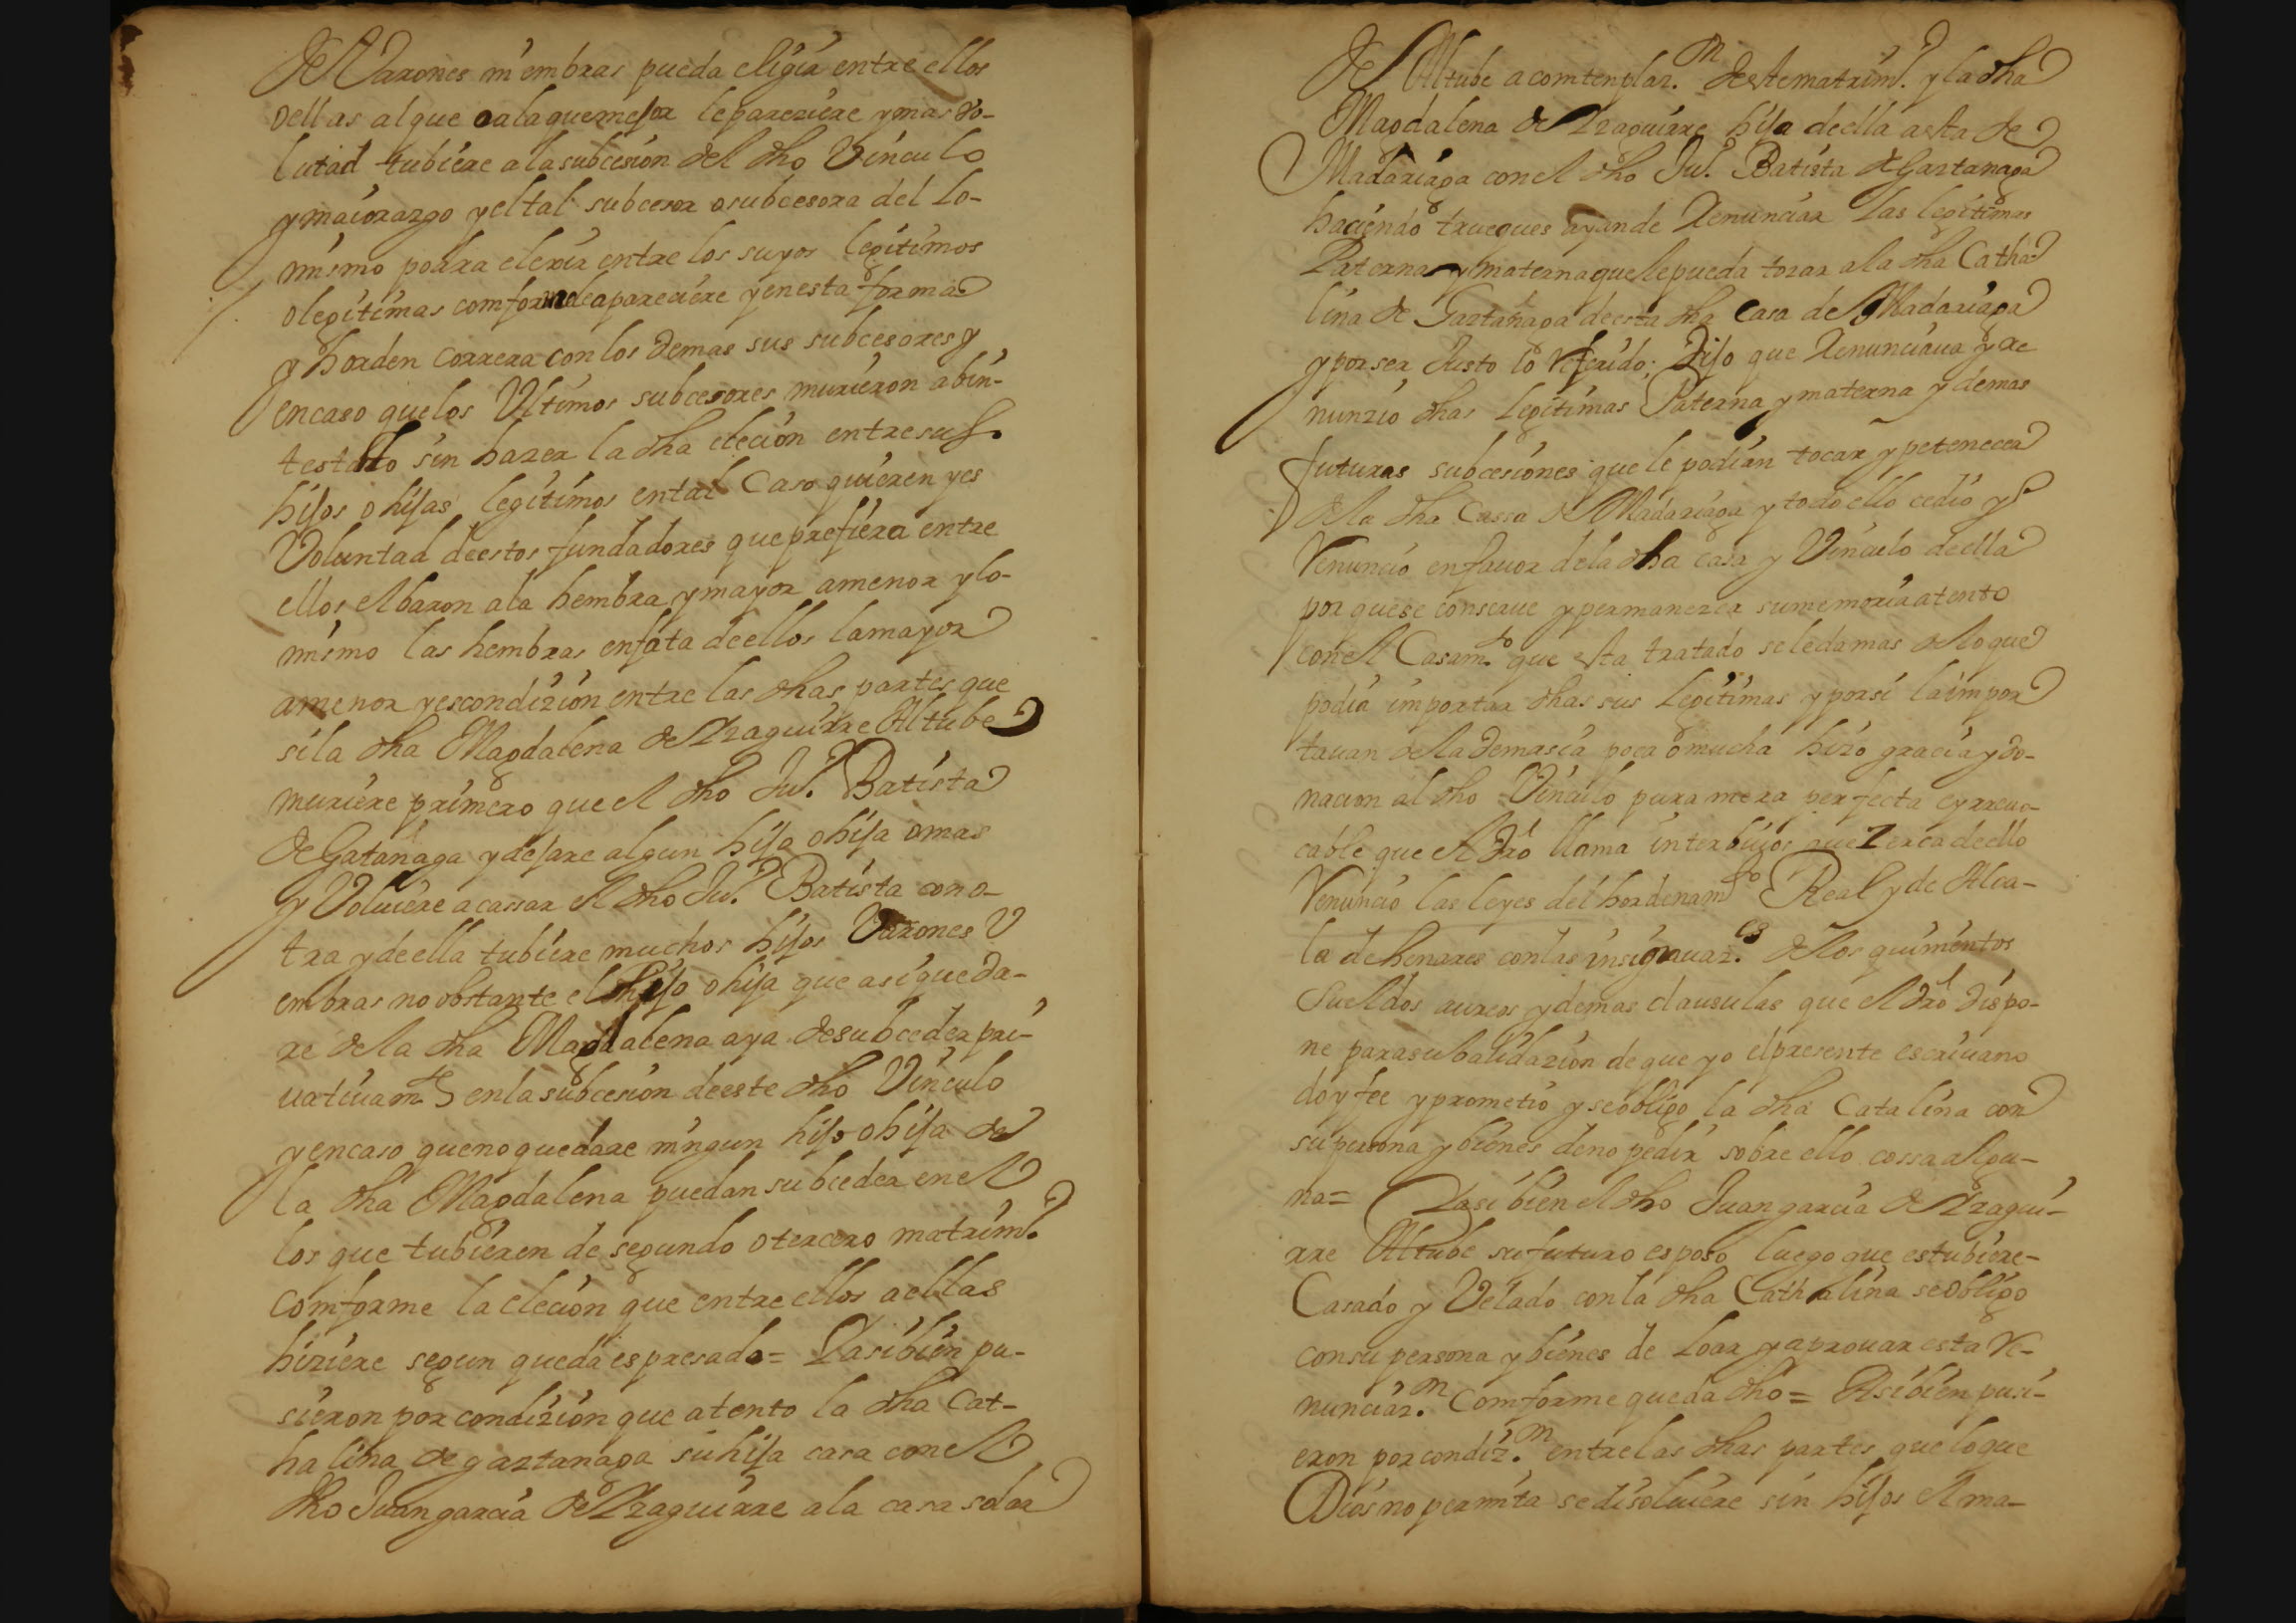 de Varones ni embras pueda eligir entre ellos
o ellas al que o a la que mejor le pareziere y mas vo-
lutad tubiere a la subcesion del dho Vinculo
y maiorazgo y el tal subcesor o subcesora del lo-
mismo podra elexir entre los suyos legitimos
o legitimas comforme le apareciere y en esta forma
y horden correra con los demas sus subcesores y
en caso que los Ultimos subcesores murieron abin-
testato sin hazer la dha elecion entre sus
hijos o hijas legitimos en tal Caso quieren y es
Voluntad de estos fundadores que prefiera entre
ellos el baron a la hembra y mayor a menor y lo-
mismo las hembras en fata de ellos la mayor
a menor y es condizion entre las dhas partes que
si la dha Magdalena de Yzaguirre Altube
muriere primero que el dho Ju.º Batista
de Gatanaga y dejare algun hijo o hija o mas
y Voluiere a cassar el dho Ju.º Batista con o-
tra y de ella tubiere muchos hijos Varones U
embras no obstante el hijo o hija que asi queda-
re de la dha Magdalena aya de subceder pri-
uatiuam.te en la subcesion de este dho Vinculo
y en caso que no quedare ningun hijo o hija de
la dha Magdalena puedan subceder en el
los que tubieren de segundo o tercero matrim.º
Comforme la elecion que entre ellos a ellas
hiziere segun queda espresado = Yasi bien pu-
sieron por condizion que atento la dha Cat-
halina de gaztanaga su hija casa con el
dho Juan garcia de Yzaguirre a la casa solar
de Altube a comtemplaz.n de este matrim.º y la dha
Magdalena de Yzaguirre hija de ella a esta de
Madariaga con el dho Ju.º Batista de Gaztanaga
haciendo trueques ayan de Renunciar las legitimas
Paterna y materna que le pueda tocar a la dha Catha
lina de Gaztañaga de esta dha Casa de Madariaga
y por ser Justo lo referido; Dijo que Renunciaua y re
nunzio dhas Legitimas Paterna y materna y demas
futuras subcesiones que le podian tocar y petenecer
de la dha Cassa de Madariaga y todo ello cedio y
Renuncio en fauor de la dha casa y Vinculo de ella
por que se conserue y permanezca su memoria atento
con el Casam.to que esta tratado se le da mas de lo que
podia importar dhas sus Legitimas y por si la impor
tauan de la demasia poca o mucha hizo gracia y do-
nacion al dho Vinculo pura mera perfecta e yrreuo-
cable que el dro llama interbiuos que Zerca de ello
Renuncio las leyes del hordenam.to Real y de Alca-
la de henares con las insignuaz.es de los quinientos
Sueldos aureos y demas clausulas que el dro dispo-
ne para su balidazion de que yo el presente escriuano
doy fee y prometio y se obligo la dha Catalina con
su persona y bienes de no pedir sobre ello cossa algu-
na = Yasi bien el dho Juan garcia de Yzagui-
rre Altube su futuro esposo luego que estubiere-
Casado y Velado con la dha Cathalina se obligo
con su persona y bienes de Loar y aprouar esta re-
nunciaz.n Comforme queda dho = Asi bien pusi-
eron por condiz.n entre las dhas partes que lo que
Dios no permita se disoluiere sin hijos el ma-